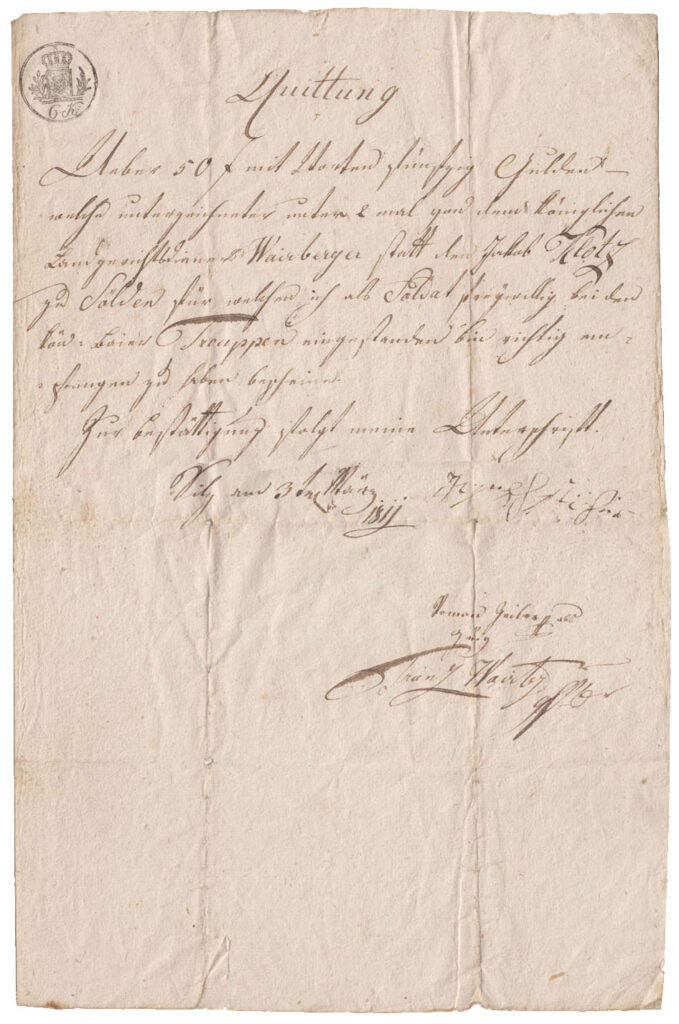 6 K
Quittung
Ueber 50 f mit Worten fünfzig Gulden
welche unterzeichneter unter 2 mal von dem königlichen
Landgerichtsdiener Wairberger statt den Jakob Klotz
zu Sölden für welchen ich als Soldat freywillig bei den
kön: Baier Trouppen eingestanden bin richtig em-
pfangen zu haben bescheine.
Zur bestättigung folgt meine Unterschrift.
Silz am 3ten März
1811
als
Zeug
Franz